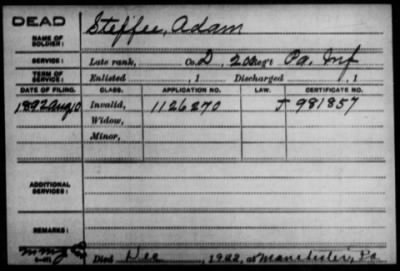 DEAD
NAME OF SOLDIER: Steffee, Adam
SERVICE: Late rank, Co. D, 200 Reg't Pa. Inf
TERM OF SERVICE: Enlisted , 1 Discharged , 1
DATE OF FILING. CLASS. APPLICATION NO. LAW. CERTIFICATE NO.
1892 Aug 10 Invalid, 1126270 J 981857
Widow,
Minor,
ADDITIONAL SERVICES:
REMARKS:
Died Dec , 1922, at Manchester, Pa